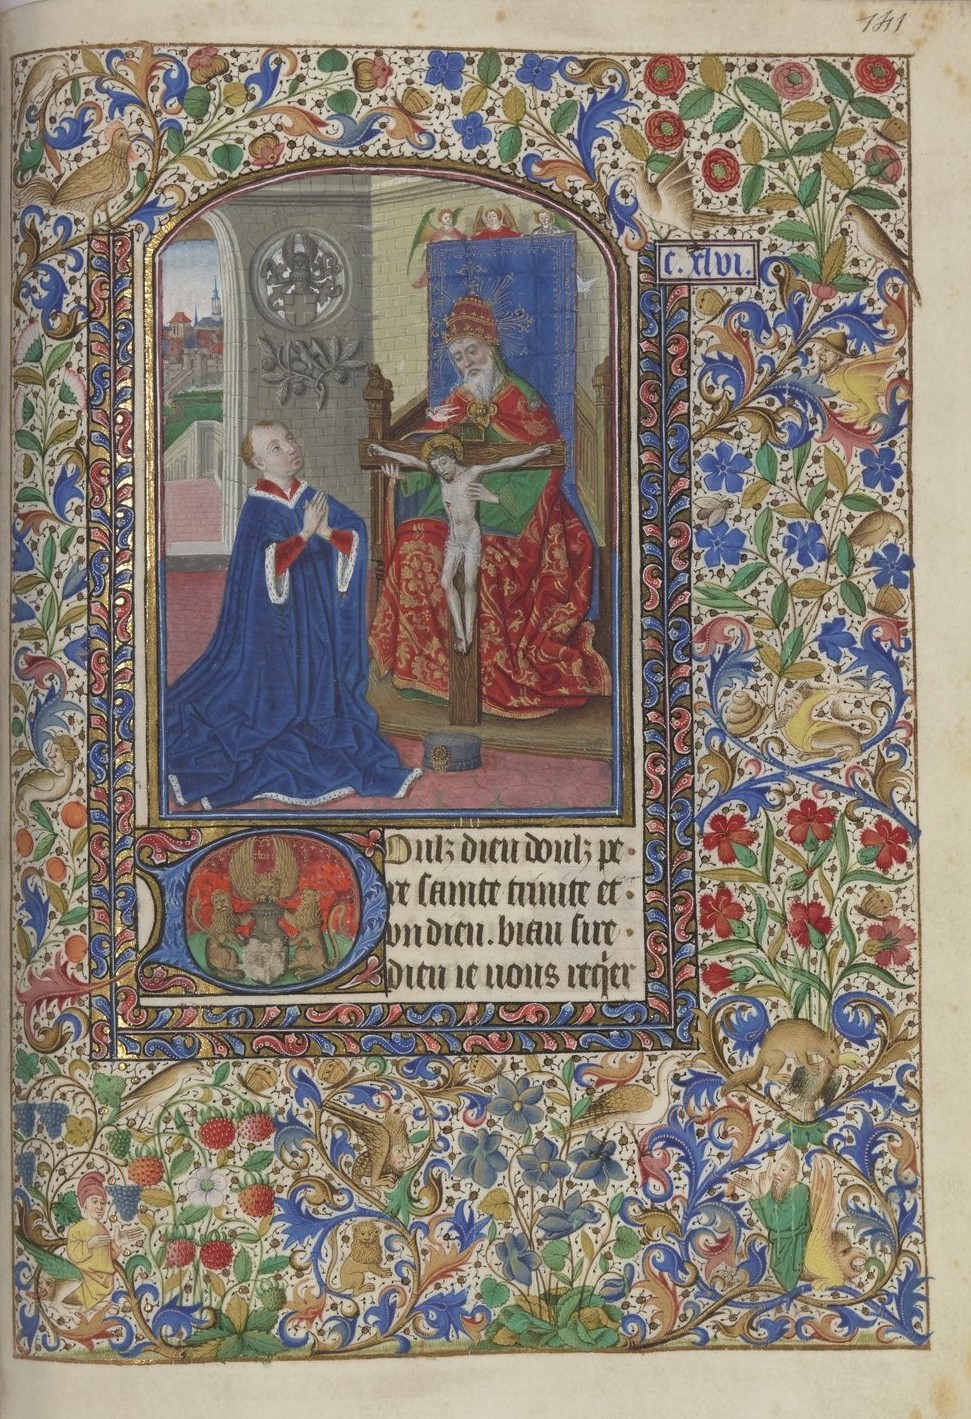 141
C. xlvi.
Doulz dieu doulz pe
re sainte trinite et
vn dieu. biau sire
dieu ie vous reqier